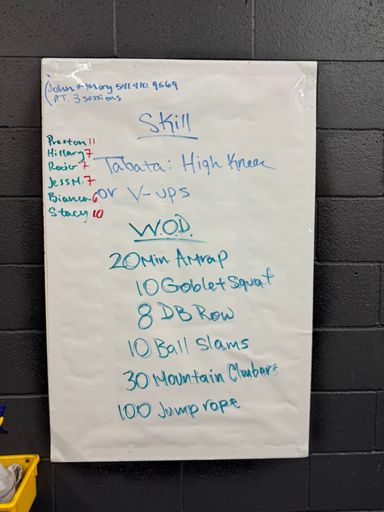 John + Mary 541.410.9569
PT 3 sessions
Skill
Preston 11
Hillary 7
Rocio 7
Jess M. 7
Bianca 6
Stacy 10
Tabata: High Knee
or V-ups
W.O.D.
20 Min Amrap
10 Goblet Squat
8 DB Row
10 Ball Slams
30 Mountain Climbers
100 Jump rope